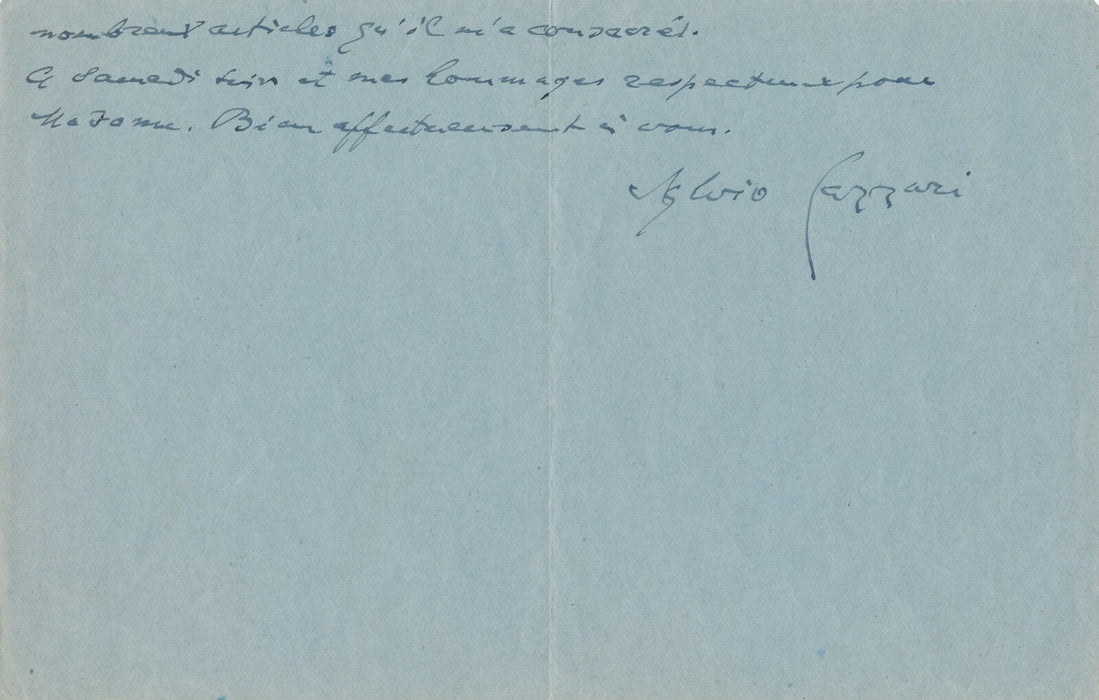 nombreux articles qu'il m'a consacrés.
A Samedi soir et mes hommages respectueux pour
Madame. Bien affectueusement à vous.
Sylvio Lazzari